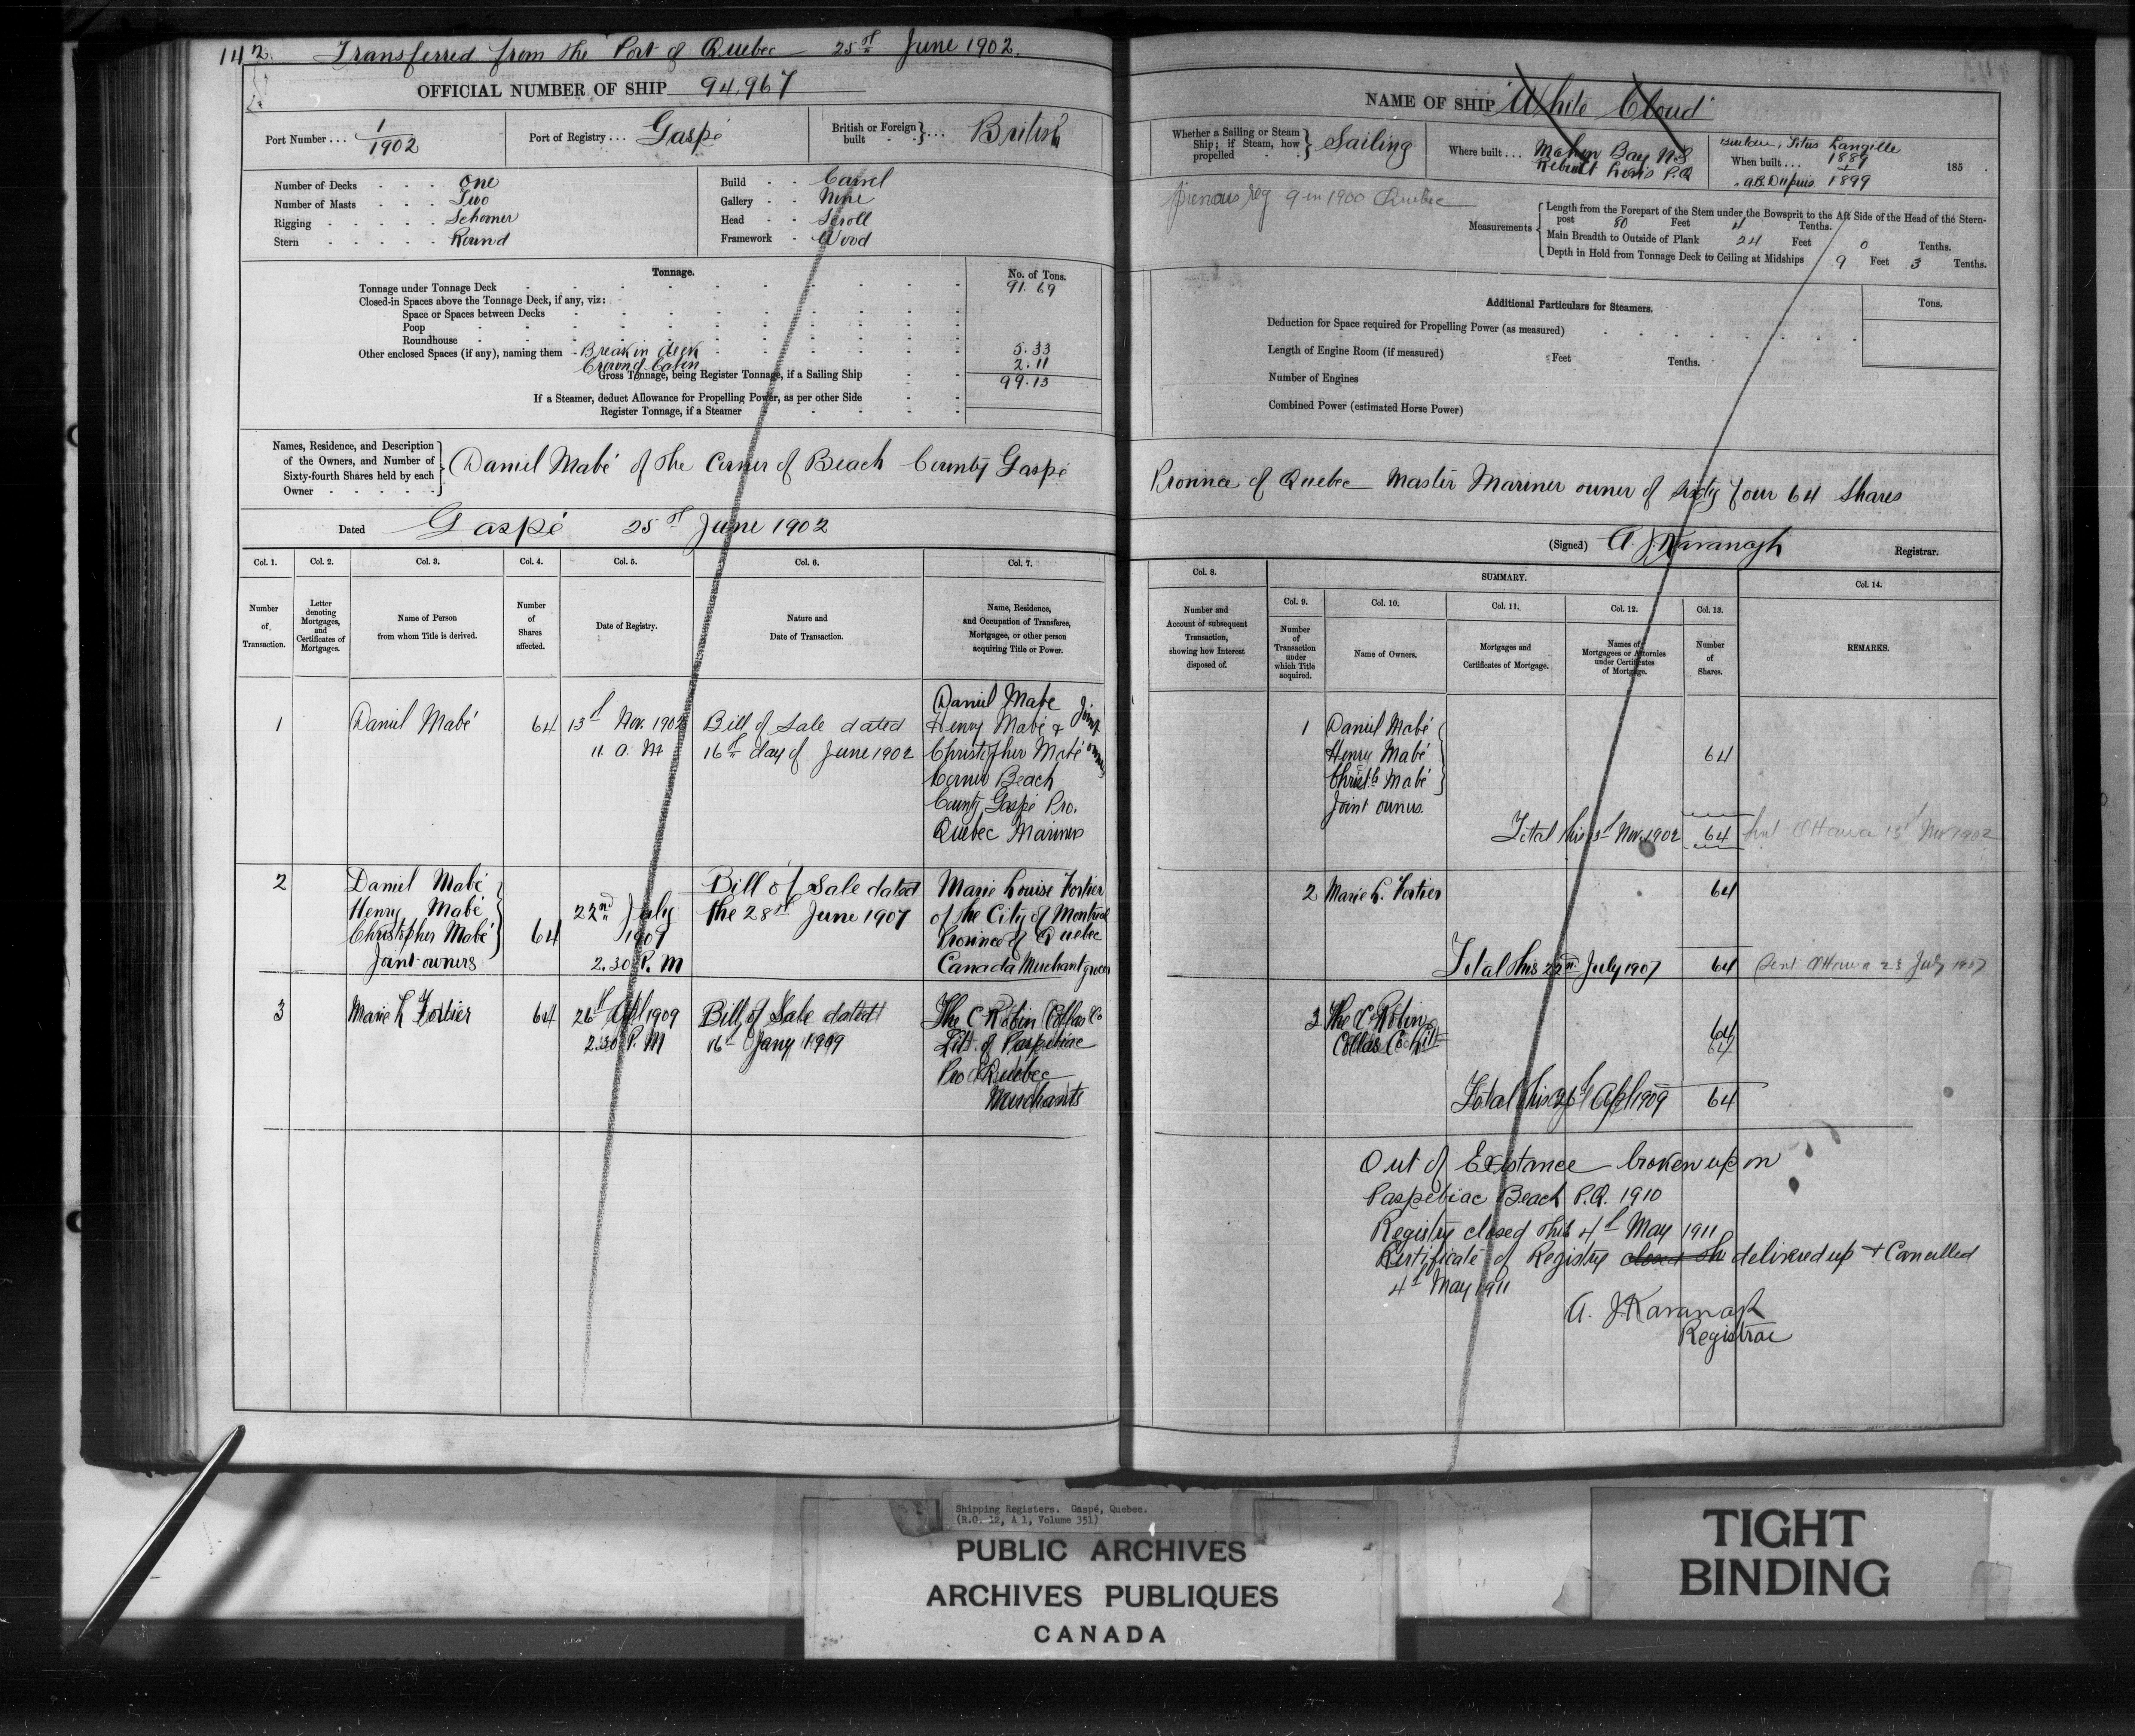 142. Transferred from the Port of Quebec 25th June 1902.
OFFICIAL NUMBER OF SHIP 94,967
Port Number ... 1/1902
Port of Registry ... Gaspé
British or Foreign built } ... British
Number of Decks One
Number of Masts Two
Rigging Schooner
Stern Round
Build Carvel
Gallery None
Head Scroll
Framework Wood
Tonnage. No. of Tons.
Tonnage under Tonnage Deck 91.69
Closed-in Spaces above the Tonnage Deck, if any, viz:
Space or Spaces between Decks
Poop
Roundhouse
Other enclosed Spaces (if any), naming them - Break in deck 5.33
Crown of Cabin 2.11
Gross Tonnage, being Register Tonnage, if a Sailing Ship 99.13
If a Steamer, deduct Allowance for Propelling Power, as per other Side
Register Tonnage, if a Steamer
Names, Residence, and Description
of the Owners, and Number of
Sixty-fourth Shares held by each
Owner
Daniel Mabé of the Corner of Beach County Gaspé
Dated Gaspé 25th June 1902
Col. 1. Col. 2. Col. 3. Col. 4. Col. 5. Col. 6. Col. 7.
Number of Transaction.
Letter denoting Mortgages, and Certificates of Mortgages.
Name of Person from whom Title is derived.
Number of Shares affected.
Date of Registry.
Nature and Date of Transaction.
Name, Residence, and Occupation of Transferee, Mortgagee, or other person acquiring Title or Power.
1 Daniel Mabé 64 13th Nov. 1902 11 A. M Bill of Sale dated 16th day of June 1902
Daniel Mabe
Henry Mabé &
Christopher Mabé
Joint owners
Corner Beach
County Gaspé Pro.
Quebec Mariners
2 Daniel Mabé
Henry Mabé
Christopher Mabé
Joint owners
64
22nd July
1907
2.30 P. M
Bill of Sale dated
the 28th June 1907
Marie Louise Fortier
of the City of Montreal
Province of Quebec
Canada Merchant grocer
3 Marie L Fortier 64 26th Apl 1909
2.30 P. M
Bill of Sale dated
16th Jany 1909
The C Robin Collas Co
Ltd. of Paspebiac
Pro Quebec
Merchants
NAME OF SHIP "White Cloud"
Whether a Sailing or Steam
Ship; if Steam, how
propelled
Sailing
Where built ... Mahon Bay N.S
Rebuilt Levis P.Q
Builder, Titus Langille
When built ... 1889 185
A.B. Dupuis 1899
previous reg 9 in 1900 Quebec
Measurements
Length from the Forepart of the Stem under the Bowsprit to the Aft Side of the Head of the Stern-
post 80 Feet 4 Tenths.
Main Breadth to Outside of Plank 24 Feet 0 Tenths.
Depth in Hold from Tonnage Deck to Ceiling at Midships 9 Feet 3 Tenths.
Additional Particulars for Steamers. Tons.
Deduction for Space required for Propelling Power (as measured)
Length of Engine Room (if measured) Feet Tenths.
Number of Engines
Combined Power (estimated Horse Power)
Province of Quebec Master Mariner owner of sixty four 64 Shares
(Signed) A. J. Kavanagh Registrar.
Col. 8. SUMMARY. Col. 14.
Col. 9. Col. 10. Col. 11. Col. 12. Col. 13.
Number and Account of subsequent Transaction, showing how Interest disposed of.
Number of Transaction under which Title acquired.
Name of Owners.
Mortgages and Certificates of Mortgage.
Names of Mortgagees or Attornies under Certificates of Mortgage.
Number of Shares.
REMARKS.
1 Daniel Mabé
Henry Mabé 64
Christr Mabé
Joint owners
Total this 13th Nov. 1902 64 Sent Ottawa 13th Nov 1902
2 Marie L. Fortier 64
Total this 22nd July 1907 64 Sent Ottawa 23 July 1907
3 The C. Robin
Collas Co Ltd 64
64
Total this 26th Apl 1909 64
Out of Existance broken up on
Paspebiac Beach P.Q. 1910
Registry closed this 4th May 1911
Certificate of Registry closed this delivered up & Cancelled
4th May 1911
A. J. Kavanagh
Registrar
Shipping Registers. Gaspé, Quebec.
(R.G. 12, A 1, Volume 351)
PUBLIC ARCHIVES
ARCHIVES PUBLIQUES
CANADA
TIGHT
BINDING